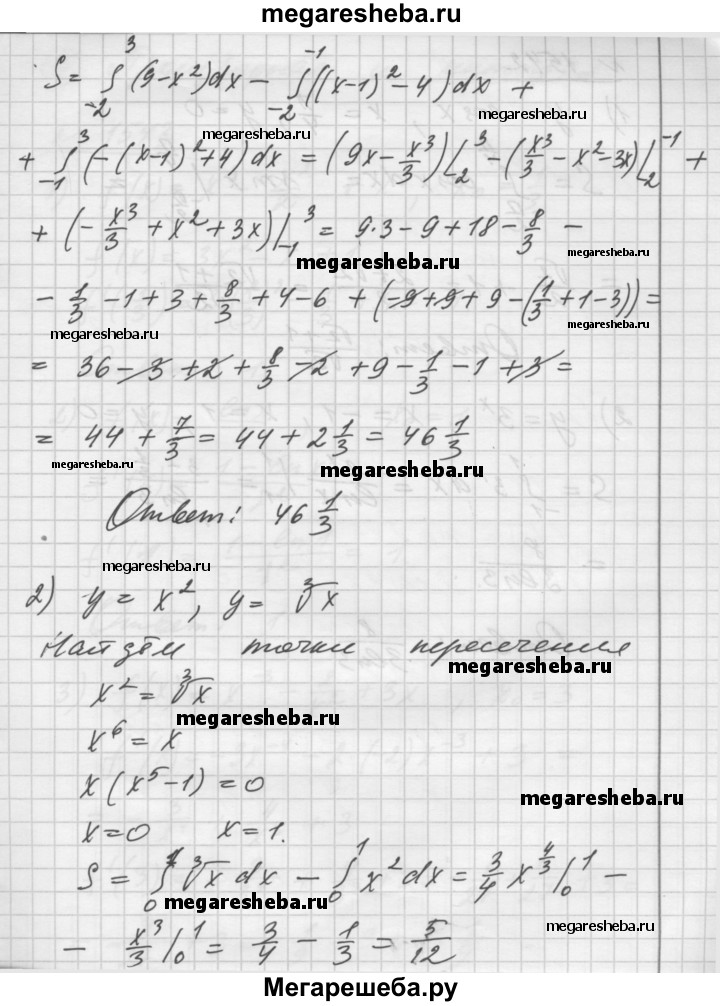 megaresheba.ru
S = ∫₋₂³ (9-x²)dx - ∫₋₂⁻¹ ((x-1)²-4)dx +
megaresheba.ru
megaresheba.ru
+ ∫₋₁³ (-(x-1)²+4)dx = (9x - x³/3)|₋₂³ - (x³/3 - x² - 3x)|₋₂⁻¹ +
+ (-x³/3 + x² + 3x)|₋₁³ = 9·3 - 9 + 18 - 8/3 -
megaresheba.ru
megaresheba.ru
- 1/3 - 1 + 3 + 8/3 + 4 - 6 + (-9+9+9-(1/3+1-3)) =
megaresheba.ru
megaresheba.ru
= 36 - 3 + 2 + 8/3 - 2 + 9 - 1/3 - 1 + 3 =
= 44 + 7/3 = 44 + 2 1/3 = 46 1/3
megaresheba.ru
megaresheba.ru
megaresheba.ru
Ответ: 46 1/3
megaresheba.ru
2) y = x², y = ∛x
Найдём точки пересечения
megaresheba.ru
x² = ∛x
megaresheba.ru
x⁶ = x
x(x⁵-1) = 0
megaresheba.ru
x=0 x=1.
S = ∫₀¹ ∛x dx - ∫₀¹ x² dx = 3/4 x^(4/3)|₀¹ -
megaresheba.ru
megaresheba.ru
- x³/3|₀¹ = 3/4 - 1/3 = 5/12
Мегарешеба.ру